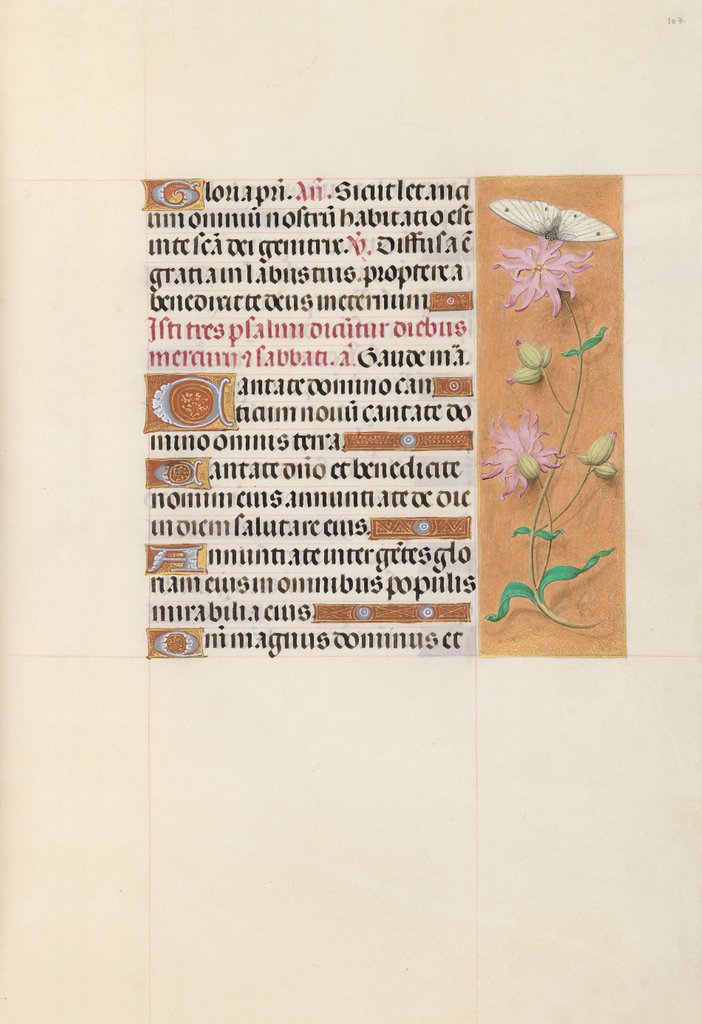 107
Gloria pri. An̄. Sicut letanci
um omniū nostrū habitatio est
in te scā dei genitrix. V̄. Diffusa ē
gratia in labiis tuis. propterea
benedixit te deus ineternum.
Isti tres psalmi dicūtur diebus
mercurij ⁊ sabbati. a̅. Gaude m̄a.
Cantate domino can
ticum nouū cantate do
mino omnis terra.
Cantate dn̄o et benedicite
nomini eius annuntiate de die
in diem salutare eius.
Annuntiate inter gētes glo
riam eius in omnibus populis
mirabilia eius.
Qm̄ magnus dominus et